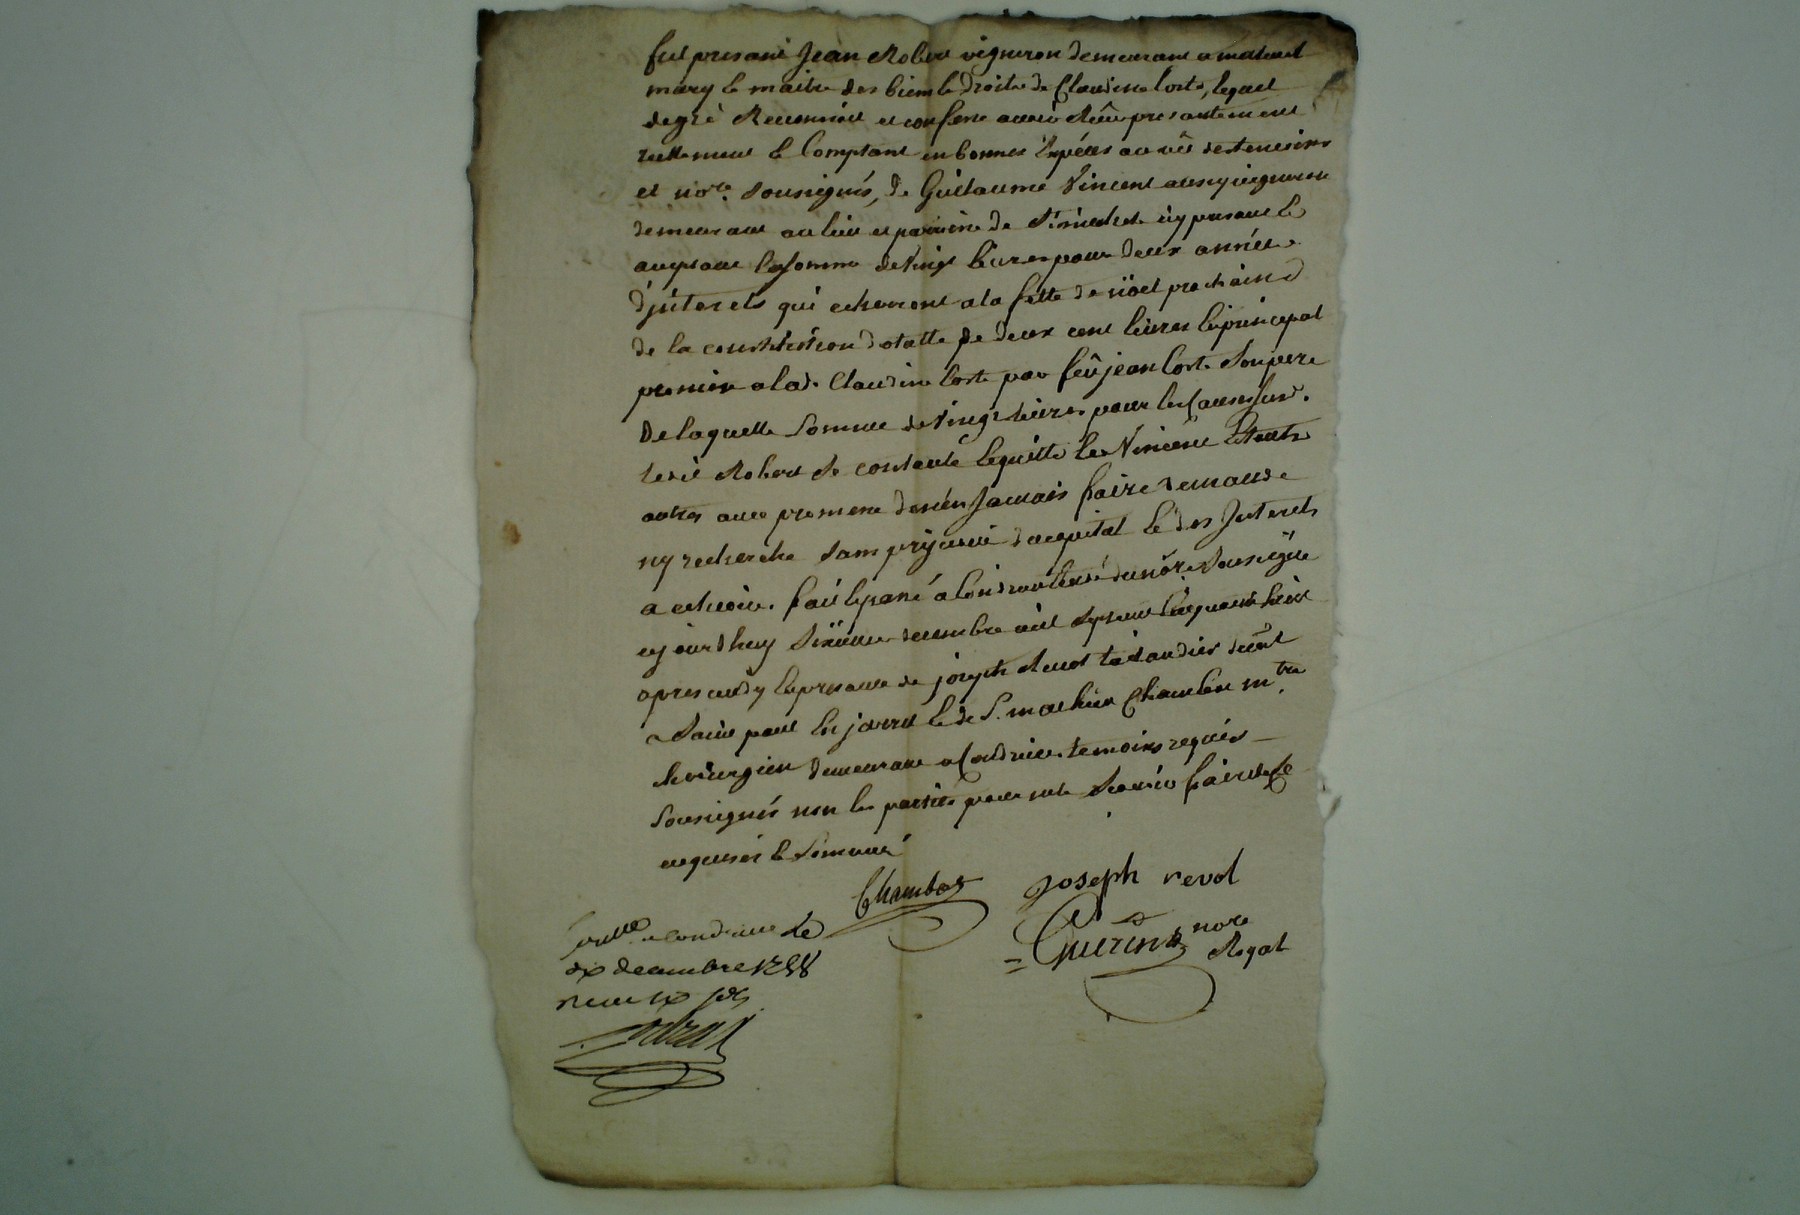 fut presant Jean Robert vigneron demeurant a
mary & maitre des biens & droits de Claudine Corte, lequel
de gré Reconnoit et confesse avoir Réû presantement
réellement & Comptant en bonnes Espéces au vû des temoins
et nore. soussignés, de Guillaume Vincent aussy vigneron
demeurant au lieu et paroisse de St michel icy presant &
acceptant la somme de vingt livres pour deux années
d'jnterets qui echerront a la fette de nöel prochain
de la constitution dotalle de deux cent livres en principal
promise a lad. Claudine Corte par feû jean Corte son pere
De laquelle somme de vingt livres pour les causes susd.
ledit Robert se contante & quitte led Vincent & tous
autres avec promesse de n'en Jamais faire demande
ny recherche sans prejudice du capital & des Jnterets
a echeoir. fait & passé a Condrieu étude du nore. soussigné
cejourdhuy sixieme decembre mil sept cent cinquante huit
apres midy en presance de joseph Revol taÿandier demt
a Saint paul en jarret & de S. mathieu Chambas mtre.
chirurgien demeurant a Condrieu temoins requis
soussignés non les parties pour ne le sçavoir faire de ce
enquises & sommées
Chambas Joseph revol
Guerin nore
Royal
Controllé a condrieu le
dix decembre 1758
Reçu six sols